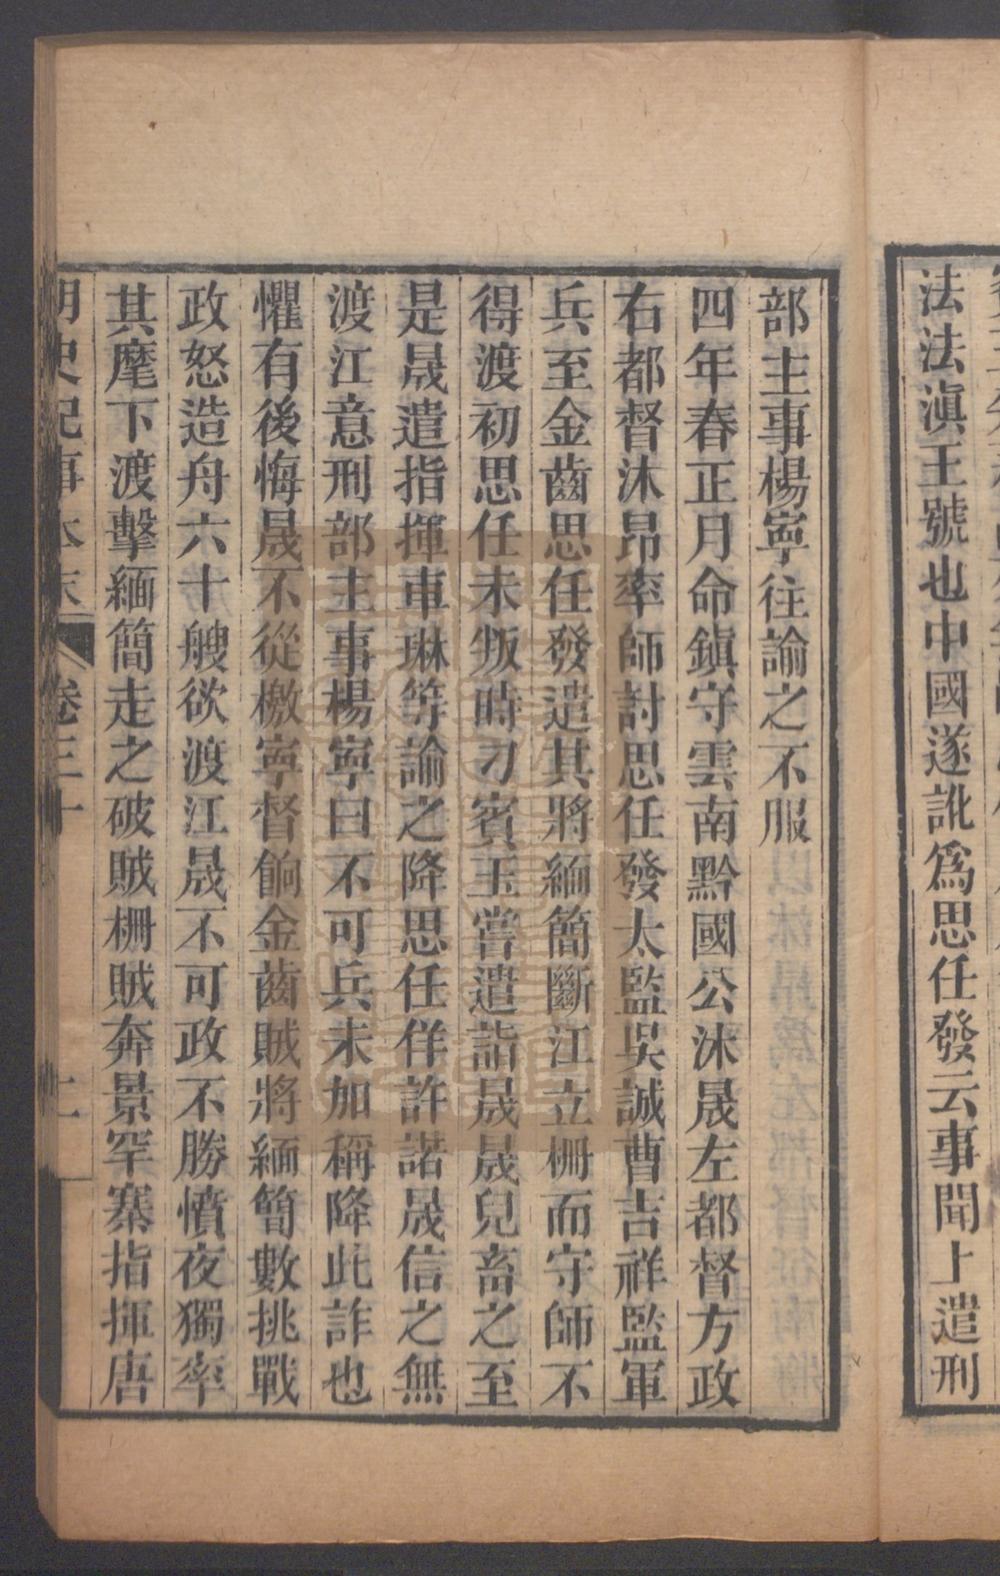 法法滇王號也中國遂訛爲思任發云事聞上遣刑
部主事楊寧往諭之不服
四年春正月命鎮守雲南黔國公沐晟左都督方政
右都督沐昂率師討思任發太監吳誠曹吉祥監軍
兵至金齒思任發遣其將緬簡斷江立柵而守師不
得渡初思任未叛時刀賓玉嘗遣詣晟晟兒畜之至
是晟遣指揮車琳等諭之降思任佯許諾晟信之無
渡江意刑部主事楊寧曰不可兵未加稱降此詐也
懼有後悔晟不從檄寧督餉金齒賊將緬簡數挑戰
政怒造舟六十艘欲渡江晟不可政不勝憤夜獨率
其麾下渡擊緬簡走之破賊柵賊奔景罕寨指揮唐
明史紀事本末 卷三十